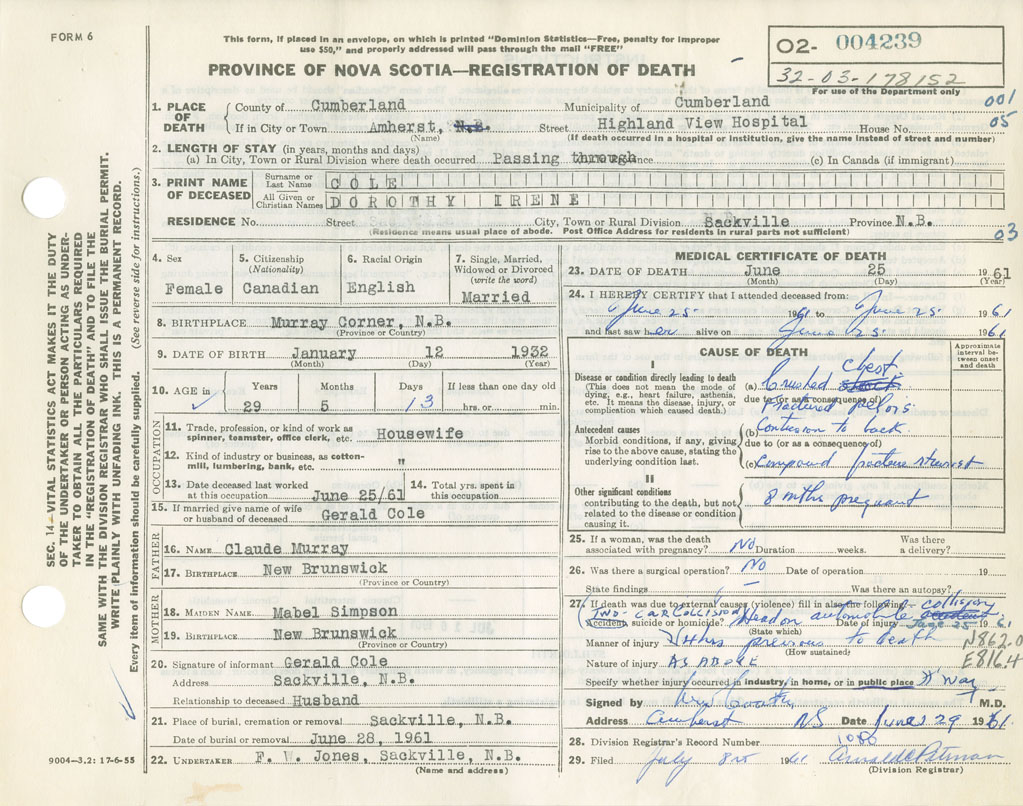 FORM 6
This form, if placed in an envelope, on which is printed "Dominion Statistics—Free, penalty for improper
use $50," and properly addressed will pass through the mail "FREE"
PROVINCE OF NOVA SCOTIA—REGISTRATION OF DEATH
02- 004239
32-03-178152
For use of the Department only
001
05
03
1. PLACE OF DEATH
County of Cumberland Municipality of Cumberland
If in City or Town Amherst, N.B. Street Highland View Hospital House No.
(Name) (If death occurred in a hospital or institution, give the name instead of street and number)
2. LENGTH OF STAY (in years, months and days)
(a) In City, Town or Rural Division where death occurred Passing through (c) In Canada (if immigrant)
3. PRINT NAME OF DECEASED
Surname or Last Name COLE
All Given or Christian Names DOROTHY IRENE
RESIDENCE No. Street City, Town or Rural Division Sackville Province N.B.
(Residence means usual place of abode. Post Office Address for residents in rural parts not sufficient)
4. Sex Female
5. Citizenship (Nationality) Canadian
6. Racial Origin English
7. Single, Married, Widowed or Divorced (write the word) Married
8. BIRTHPLACE Murray Corner, N.B.
(Province or Country)
9. DATE OF BIRTH January 12 1932
(Month) (Day) (Year)
10. AGE in Years Months Days If less than one day old
29 5 13 hrs. or min.
OCCUPATION
11. Trade, profession, or kind of work as
spinner, teamster, office clerk, etc. Housewife
12. Kind of industry or business, as cotton-
mill, lumbering, bank, etc. "
13. Date deceased last worked
at this occupation June 25/61
14. Total yrs. spent in
this occupation
15. If married give name of wife
or husband of deceased Gerald Cole
FATHER
16. NAME Claude Murray
17. BIRTHPLACE New Brunswick
(Province or Country)
MOTHER
18. MAIDEN NAME. Mabel Simpson
19. BIRTHPLACE New Brunswick
(Province or Country)
20. Signature of informant Gerald Cole
Address Sackville, N.B.
Relationship to deceased Husband
21. Place of burial, cremation or removal Sackville, N.B.
Date of burial or removal June 28, 1961
22. UNDERTAKER F. W. Jones, Sackville, N.B.
(Name and address)
MEDICAL CERTIFICATE OF DEATH
23. DATE OF DEATH June 25 1961
(Month) (Day) (Year)
24. I HEREBY CERTIFY that I attended deceased from:
June 25 1961 to June 25 1961
and last saw her alive on June 25 1961
CAUSE OF DEATH
Approximate interval between onset and death
I
Disease or condition directly leading to death
(This does not mean the mode of
dying, e.g., heart failure, asthenia,
etc. It means the disease, injury, or
complication which caused death.)
(a) Crushed chest
due to (or as consequence of)
Fractured pelvis
Antecedent causes
Morbid conditions, if any, giving
rise to the above cause, stating the
underlying condition last.
(b) Contusion to back
due to (or as a consequence of)
(c) Compound fracture
II
Other significant conditions
contributing to the death, but not
related to the disease or condition
causing it.
8 mths pregnant
25. If a woman, was the death
associated with pregnancy? No Duration weeks. Was there
a delivery?
26. Was there a surgical operation? No Date of operation 19
State findings — Was there an autopsy?
27. If death was due to external causes (violence) fill in also the following
TWO-CAR COLLISION
Accident, suicide or homicide? Head on automobile collision Date of injury June 25 1961
(State which)
Manner of injury hrs previous to death
(How sustained)
Nature of injury AS ABOVE
N862.0
E816.4
Specify whether injury occurred in industry, in home, or in public place H'way
Signed by M.D.
Address Amherst NS Date June 29 1961
28. Division Registrar's Record Number 1080
29. Filed July 8 1961
(Division Registrar)
SEC. 14—VITAL STATISTICS ACT MAKES IT THE DUTY
OF THE UNDERTAKER OR PERSON ACTING AS UNDER-
TAKER TO OBTAIN ALL THE PARTICULARS REQUIRED
IN THE "REGISTRATION OF DEATH" AND TO FILE THE
SAME WITH THE DIVISION REGISTRAR WHO SHALL ISSUE THE BURIAL PERMIT.
WRITE PLAINLY WITH UNFADING INK. THIS IS A PERMANENT RECORD.
Every item of information should be carefully supplied. (See reverse side for instructions.)
9004-3.2: 17-6-55